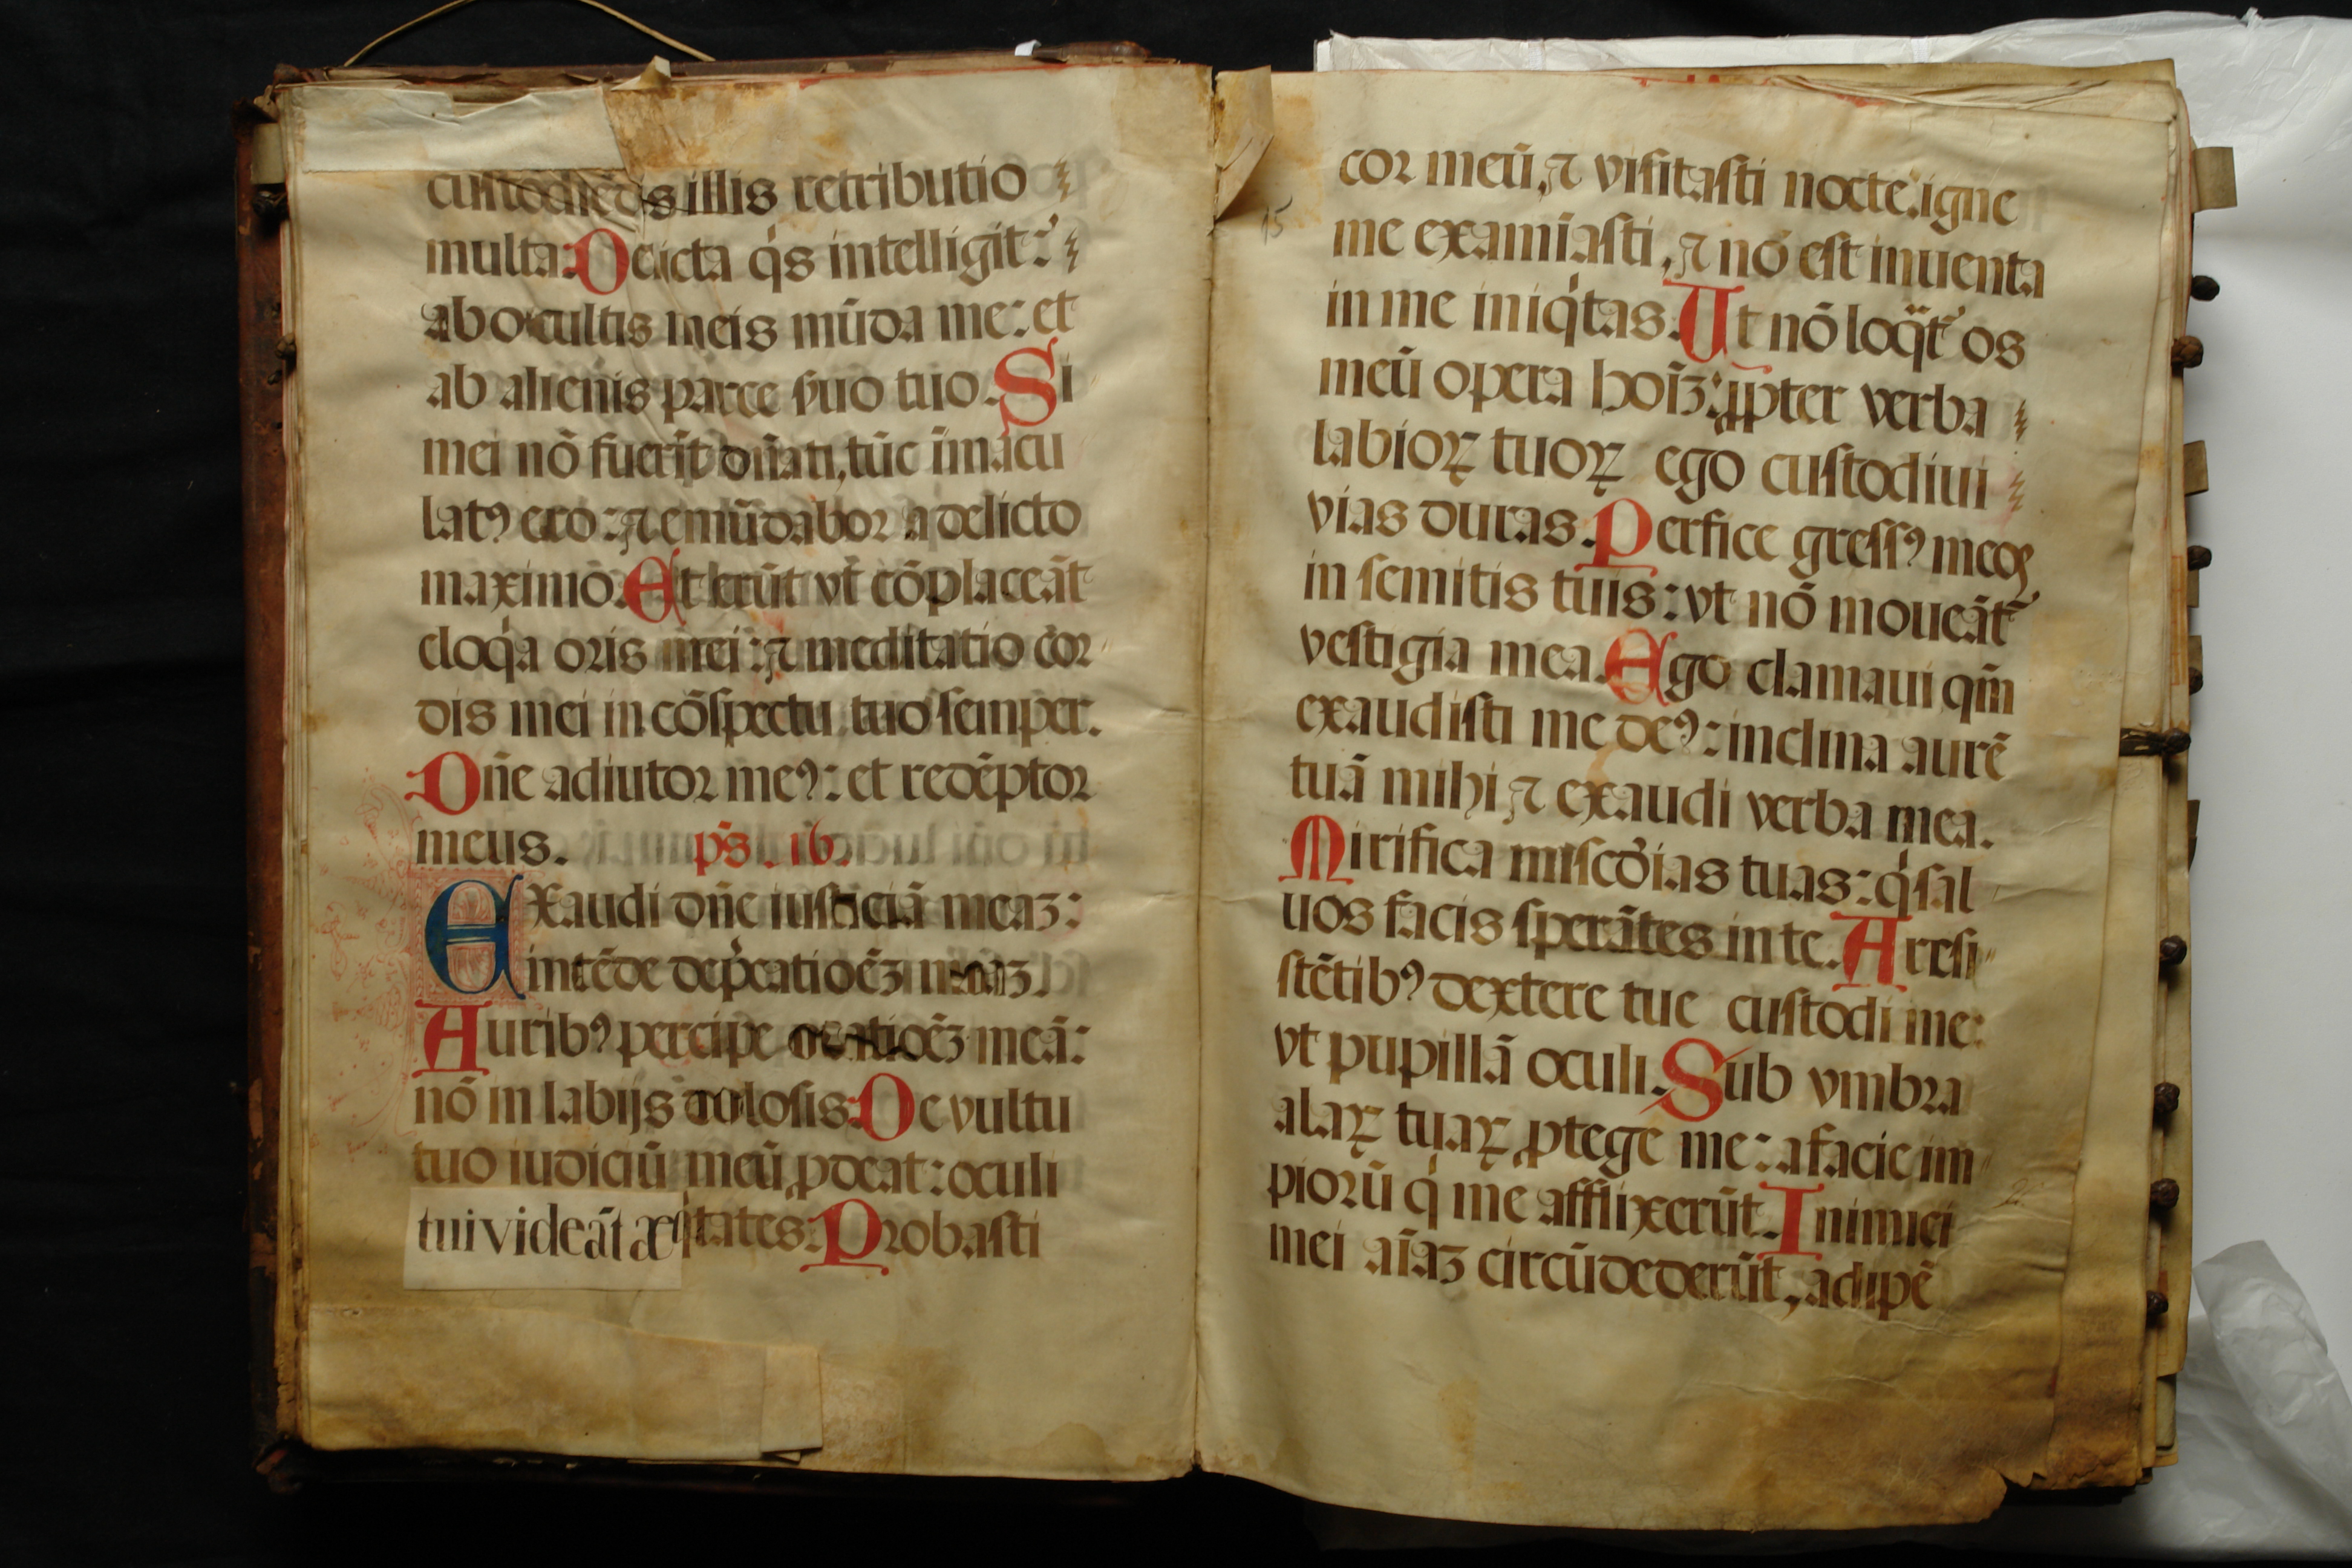 custodiēdis illis retributio
multa. Delicta q̇s intelligit:
ab occultis meis mūda me: et
ab alienis parce ẜuo tuo. Si
mei nō fuerīt dn̄ati, tūc īmacu
latꝰ ero: ⁊ emūdabor a delicto
maximo. Et erūt vt cōplaceāt
eloq̇a oris mei: ⁊ meditatio cor
dis mei in cōspectu tuo semper.
Dn̄e adiutor meꝰ: et redēptor
meus. ps̄. 16.
EXaudi dn̄e iusticiā meaꝫ:
intēde dep̄catiōēꝫ meaꝫ.
Auribꝰ percipe oratiōēꝫ meā:
nō in labijs dolosis. De vultu
tuo iudiciū meū ꝓdeat: oculi
tui videāt æq̇tates. Probasti
15
cor meū, ⁊ visitasti nocte. igne
me examīasti, ⁊ nō est inuenta
in me iniq̇tas. Ut nō loq̄t᷑ os
meū opera hoīꝫ: ꝓpter verba
labioꝝ tuoꝝ ego custodiui
vias duras. Perfice gressꝰ meos
in semitis tuis: vt nō moueāt᷑
vestigia mea. Ego clamaui qm̄
exaudisti me deꝰ: inclina aurē
tuā mihi ⁊ exaudi verba mea.
Mirifica mis̄cdias tuas: q̇ sal
uos facis sperātes in te. A resi
stētibꝰ dextere tue custodi me:
vt pupillā oculi. Sub vmbra
alaꝝ tuaꝝ ꝓtege me: a facie im
piorū q̇ me afflixerūt. Inimici
mei aīaꝫ circūdederūt, adipē